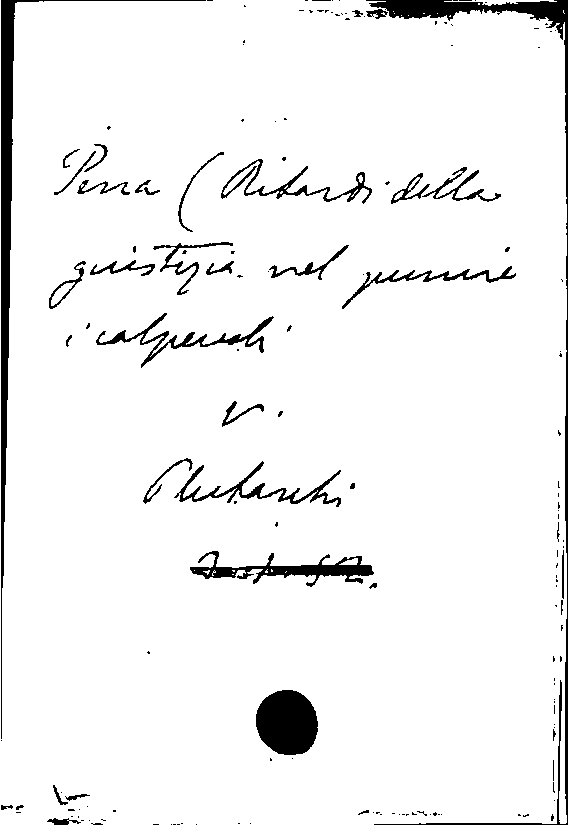 Pena (Ritardi della
giustizia nel punire
i colpevoli
V.
Plutarchi